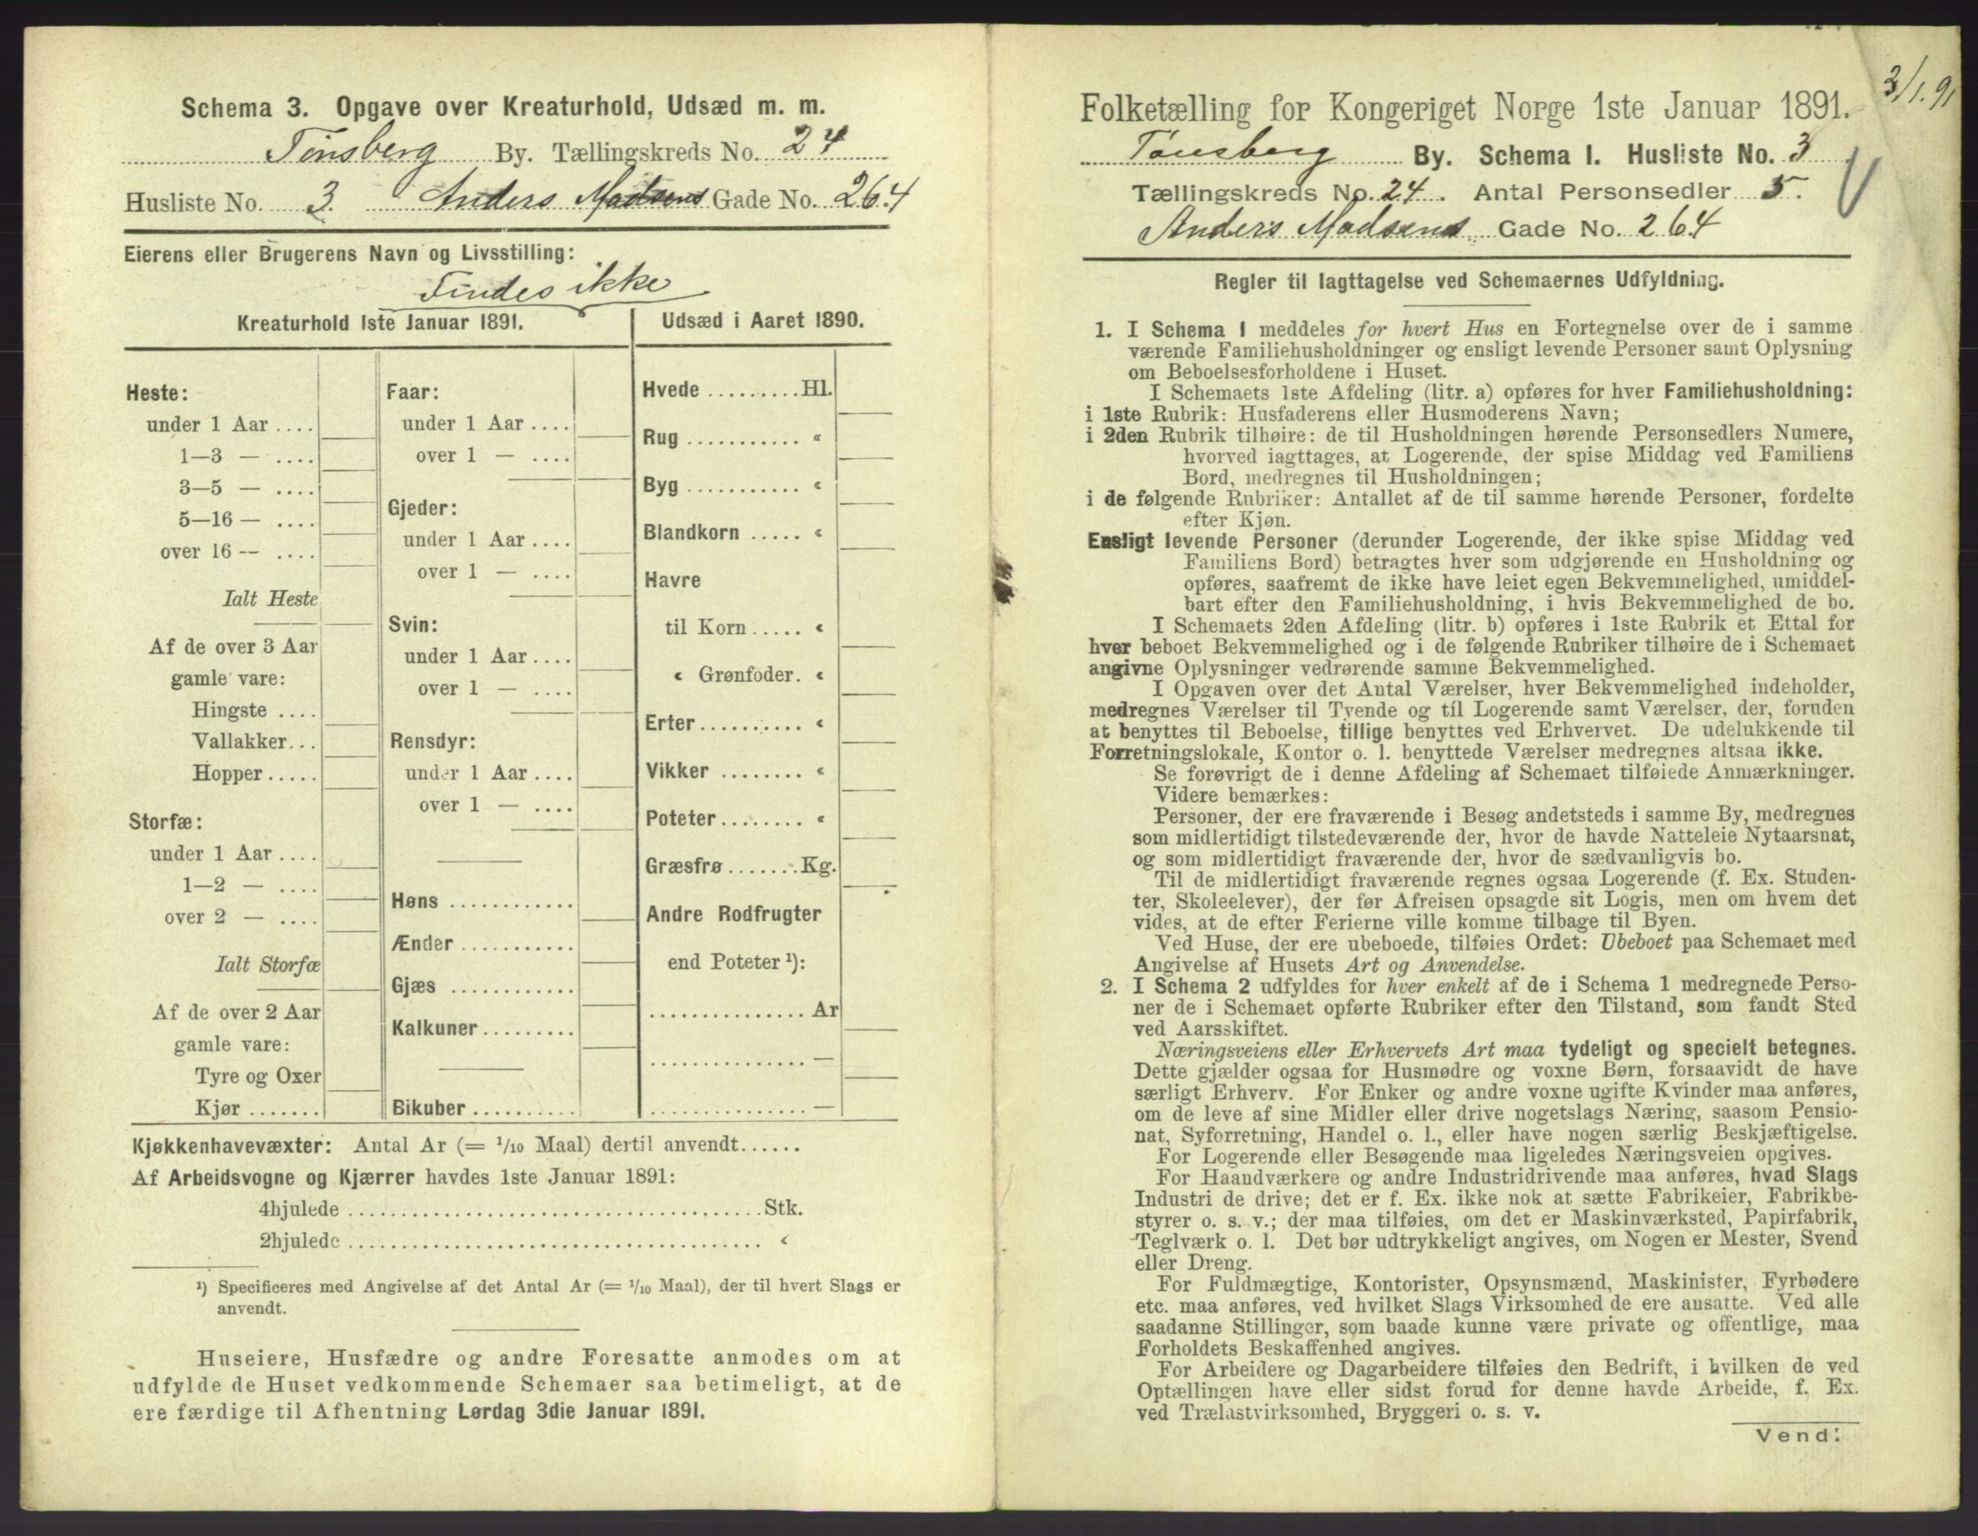 Schema 3. Opgave over Kreaturhold, Udsæd m. m.
Tønsberg By. Tællingskreds No. 24
Husliste No. 3. Anders Madsens Gade No. 264
Eierens eller Brugerens Navn og Livsstilling:
Findes ikke
Kreaturhold 1ste Januar 1891.
Heste:
under 1 Aar ....
1—3 — ....
3—5 — ....
5—16 — ....
over 16 — ....
Ialt Heste
Af de over 3 Aar
gamle vare:
Hingste ....
Vallakker...
Hopper.....
Storfæ:
under 1 Aar ....
1—2 — ....
over 2 — ....
Ialt Storfæ
Af de over 2 Aar
gamle vare:
Tyre og Oxer
Kjør .......
Faar:
under 1 Aar ....
over 1 — ....
Gjeder:
under 1 Aar ....
over 1 — ....
Svin:
under 1 Aar ....
over 1 — ....
Rensdyr:
under 1 Aar ....
over 1 — ....
Høns ............
Ænder ...........
Gjæs ............
Kalkuner.........
Bikuber ..........
Udsæd i Aaret 1890.
Hvede .........Hl.
Rug ........... «
Byg ........... «
Blandkorn ..... «
Havre
til Korn ..... «
« Grønfoder. «
Erter.......... «
Vikker ........ «
Poteter........ «
Græsfrø .......Kg.
Andre Rodfrugter
end Poteter ¹):
............... Ar
............... —
............... —
Kjøkkenhavevæxter: Antal Ar (= 1/10 Maal) dertil anvendt......
Af Arbeidsvogne og Kjærrer havdes 1ste Januar 1891:
4hjulede ......................................Stk.
2hjulede ...................................... «
¹) Specificeres med Angivelse af det Antal Ar (= 1/10 Maal), der til hvert Slags er
anvendt.
Huseiere, Husfædre og andre Foresatte anmodes om at
udfylde de Huset vedkommende Schemaer saa betimeligt, at de
ere færdige til Afhentning Lørdag 3die Januar 1891.
3/1.91
Folketælling for Kongeriget Norge 1ste Januar 1891.
Tønsberg By. Schema 1. Husliste No. 3
Tællingskreds No. 24. Antal Personsedler 5.
Anders Madsens Gade No. 264
Regler til Iagttagelse ved Schemaernes Udfyldning.
1. I Schema 1 meddeles for hvert Hus en Fortegnelse over de i samme
værende Familiehusholdninger og ensligt levende Personer samt Oplysning
om Beboelsesforholdene i Huset.
I Schemaets 1ste Afdeling (litr. a) opføres for hver Familiehusholdning:
i 1ste Rubrik: Husfaderens eller Husmoderens Navn;
i 2den Rubrik tilhøire: de til Husholdningen hørende Personsedlers Numere,
hvorved iagttages, at Logerende, der spise Middag ved Familiens
Bord, medregnes til Husholdningen;
i de følgende Rubriker: Antallet af de til samme hørende Personer, fordelte
efter Kjøn.
Ensligt levende Personer (derunder Logerende, der ikke spise Middag ved
Familiens Bord) betragtes hver som udgjørende en Husholdning og
opføres, saafremt de ikke have leiet egen Bekvemmelighed, umiddel-
bart efter den Familiehusholdning, i hvis Bekvemmelighed de bo.
I Schemaets 2den Afdeling (litr. b) opføres i 1ste Rubrik et Ettal for
hver beboet Bekvemmelighed og i de følgende Rubriker tilhøire de i Schemaet
angivne Oplysninger vedrørende samme Bekvemmelighed.
I Opgaven over det Antal Værelser, hver Bekvemmelighed indeholder,
medregnes Værelser til Tyende og til Logerende samt Værelser, der, foruden
at benyttes til Beboelse, tillige benyttes ved Erhvervet. De udelukkende til
Forretningslokale, Kontor o. l. benyttede Værelser medregnes altsaa ikke.
Se forøvrigt de i denne Afdeling af Schemaet tilføiede Anmærkninger.
Videre bemærkes:
Personer, der ere fraværende i Besøg andetsteds i samme By, medregnes
som midlertidigt tilstedeværende der, hvor de havde Natteleie Nytaarsnat,
og som midlertidigt fraværende der, hvor de sædvanligvis bo.
Til de midlertidigt fraværende regnes ogsaa Logerende (f. Ex. Studen-
ter, Skoleelever), der før Afreisen opsagde sit Logis, men om hvem det
vides, at de efter Ferierne ville komme tilbage til Byen.
Ved Huse, der ere ubeboede, tilføies Ordet: Ubeboet paa Schemaet med
Angivelse af Husets Art og Anvendelse.
2. I Schema 2 udfyldes for hver enkelt af de i Schema 1 medregnede Perso-
ner de i Schemaet opførte Rubriker efter den Tilstand, som fandt Sted
ved Aarsskiftet.
Næringsveiens eller Erhvervets Art maa tydeligt og specielt betegnes.
Dette gjælder ogsaa for Husmødre og voxne Børn, forsaavidt de have
særligt Erhverv. For Enker og andre voxne ugifte Kvinder maa anføres,
om de leve af sine Midler eller drive nogetslags Næring, saasom Pensio-
nat, Syforretning, Handel o. l., eller have nogen særlig Beskjæftigelse.
For Logerende eller Besøgende maa ligeledes Næringsveien opgives.
For Haandværkere og andre Industridrivende maa anføres, hvad Slags
Industri de drive; det er f. Ex. ikke nok at sætte Fabrikeier, Fabrikbe-
styrer o. s. v.; der maa tilføies, om det er Maskinværksted, Papirfabrik,
Teglværk o. l. Det bør udtrykkeligt angives, om Nogen er Mester, Svend
eller Dreng.
For Fuldmægtige, Kontorister, Opsynsmænd, Maskinister, Fyrbødere
etc. maa anføres, ved hvilket Slags Virksomhed de ere ansatte. Ved alle
saadanne Stillinger, som baade kunne være private og offentlige, maa
Forholdets Beskaffenhed angives.
For Arbeidere og Dagarbeidere tilføies den Bedrift, i hvilken de ved
Optællingen have eller sidst forud for denne havde Arbeide, f. Ex.
ved Trælastvirksomhed, Bryggeri o. s. v.
Vend: